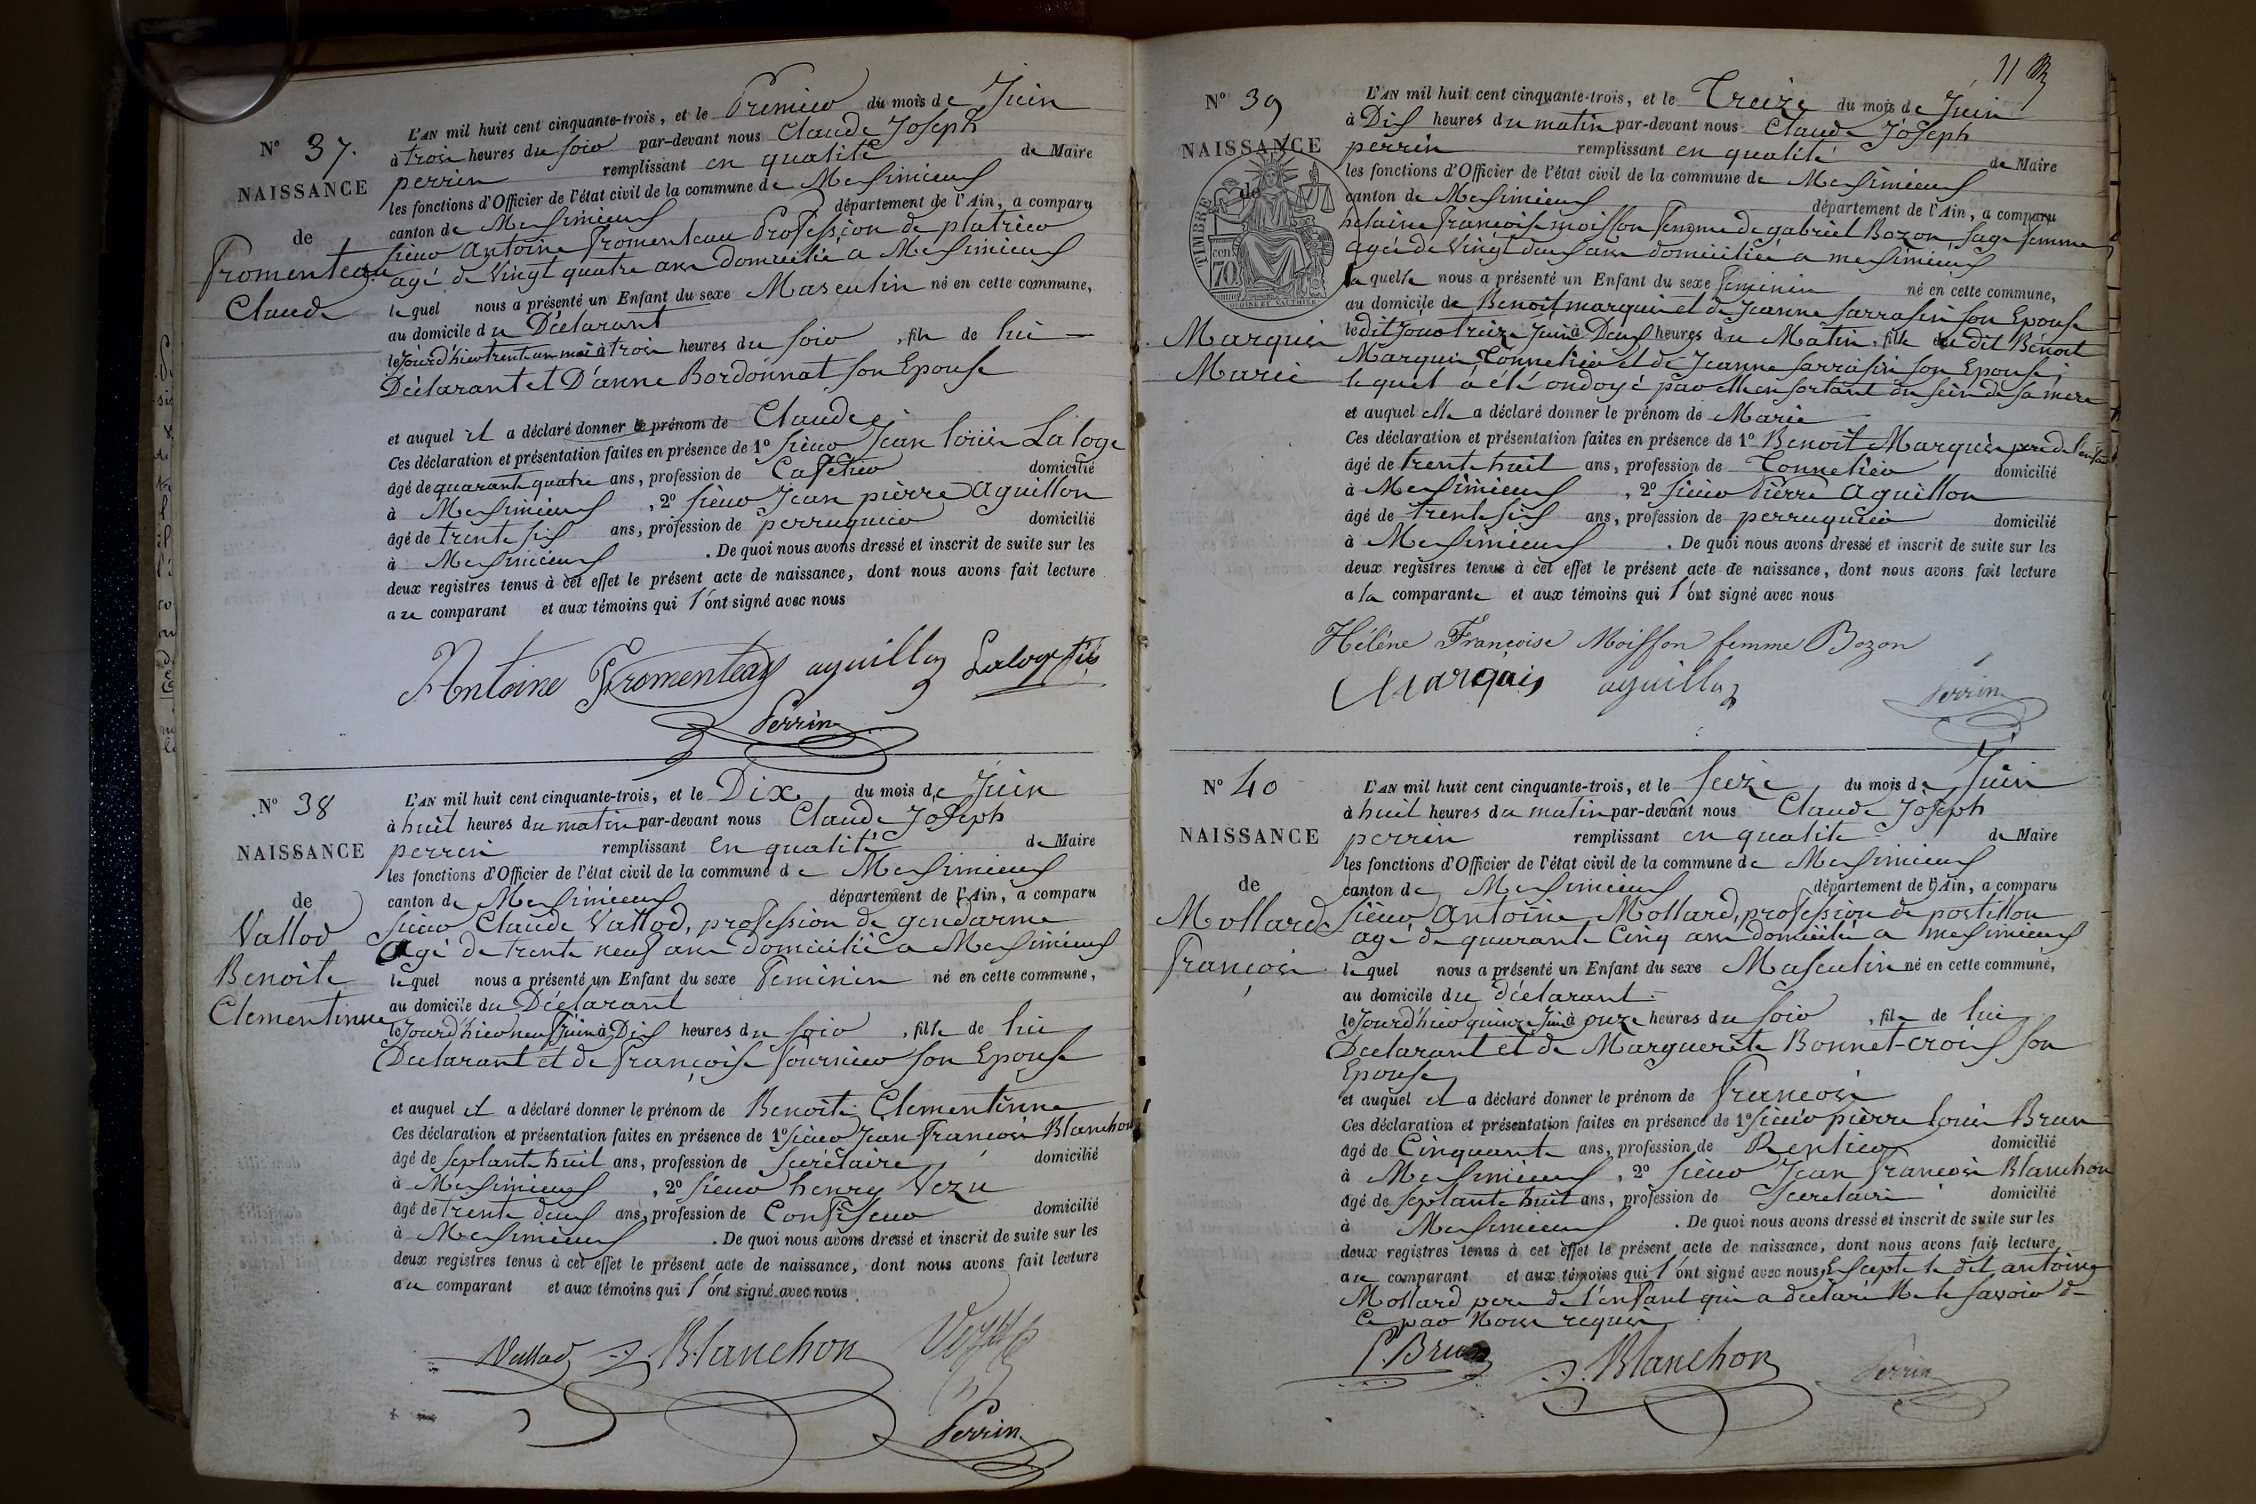 N° 37.
NAISSANCE
de
Fromenteau
Claude
L'AN mil huit cent cinquante-trois, et le Premier du mois de Juin
à trois heures du soir par-devant nous Claude Joseph
perrin remplissant en qualité de Maire
les fonctions d'Officier de l'état civil de la commune de Meximieux
canton de Meximieux département de l'Ain, a comparu
sieur Antoine Fromenteau Profession de platrier
agé de Vingt quatre ans domicilié a Meximieux
lequel nous a présenté un Enfant du sexe Masculin né en cette commune,
au domicile du Déclarant
le Jourd'hier trente un mai à trois heures du soir, fils de lui
Déclarant et D'anne Bordonnat son Epouse
et auquel il a déclaré donner le prénom de Claude
Ces déclaration et présentation faites en présence de 1° sieur Jean louis Laloge
âgé de quarant quatre ans, profession de Cafetier domicilié
à Meximieux, 2° sieur Jean pierre Aguillon
âgé de trente six ans, profession de perruquier domicilié
à Meximieux. De quoi nous avons dressé et inscrit de suite sur les
deux registres tenus à cet effet le présent acte de naissance, dont nous avons fait lecture
au comparant et aux témoins qui l'ont signé avec nous
Antoine Fromenteau aguillon Laloge fils
Perrin
N° 38
NAISSANCE
de
Vallod
Benoite
Clementinne
L'AN mil huit cent cinquante-trois, et le Dix du mois de Juin
à huit heures du matin par-devant nous Claude Joseph
perrin remplissant en qualité de Maire
les fonctions d'Officier de l'état civil de la commune de Meximieux
canton de Meximieux département de l'Ain, a comparu
sieur Claude Vallod, profession de gendarme
agé de trente neuf ans domicilié a Meximieux
lequel nous a présenté un Enfant du sexe Feminin né en cette commune,
au domicile du Déclarant
le Jourd'hier neuf Juin à Dix heures du soir, fille de lui
Declarant et de Françoise Fournier son Epouse
et auquel il a déclaré donner le prénom de Benoite Clementinne
Ces déclaration et présentation faites en présence de 1° sieur Jean François Blanchon
âgé de septante huit ans, profession de Secrétaire domicilié
à Meximieux, 2° sieur henry Vezu
âgé de trente deux ans, profession de Confiseur domicilié
à Meximieux. De quoi nous avons dressé et inscrit de suite sur les
deux registres tenus à cet effet le présent acte de naissance, dont nous avons fait lecture
au comparant et aux témoins qui l'ont signé avec nous
Vallod Blanchon Vezu
Perrin
11
N° 39
NAISSANCE
de
TIMBRE
70
Marquis
Marie
L'AN mil huit cent cinquante-trois, et le Treize du mois de Juin
à Dix heures du matin par-devant nous Claude Joseph
perrin remplissant en qualité de Maire
les fonctions d'Officier de l'état civil de la commune de Meximieux
canton de Meximieux département de l'Ain, a comparu
helaine françoise moisson femme de gabriel Bozon, sage femme
agée de Vingt deux ans domiciliée a meximieux
laquelle nous a présenté un Enfant du sexe feminin né en cette commune,
au domicile de Benoit marquis et de Jeanne sarrasin son Epouse
le dit Jour treize Juin à Deux heures du Matin, fille du dit Benoit
Marquis Tonnelier et de Jeanne sarrasin son Epouse,
lequel a été ondoyé par elle en sortant du sein de sa mere
et auquel elle a déclaré donner le prénom de Marie
Ces déclaration et présentation faites en présence de 1° Benoit Marquis pere de l'enfant
âgé de trente huit ans, profession de Tonnelier domicilié
à Meximieux, 2° sieur Pierre Aguillon
âgé de trente six ans, profession de perruquier domicilié
à Meximieux. De quoi nous avons dressé et inscrit de suite sur les
deux registres tenus à cet effet le présent acte de naissance, dont nous avons fait lecture
a la comparante et aux témoins qui l'ont signé avec nous
Hélène Françoise Moisson femme Bozon
Marquis aguillon Perrin
N° 40
NAISSANCE
de
Mollard
François
L'AN mil huit cent cinquante-trois, et le seize du mois de Juin
à huit heures du matin par-devant nous Claude Joseph
perrin remplissant en qualité de Maire
les fonctions d'Officier de l'état civil de la commune de Meximieux
canton de Meximieux département de l'Ain, a comparu
sieur Antoine Mollard, profession de postillon
agé de quarante Cinq ans domicilié a meximieux
lequel nous a présenté un Enfant du sexe Masculin né en cette commune,
au domicile du déclarant
le Jourd'hier quinze Juin à onze heures du soir, fils de lui
Declarant et de Marguerite Bonnet-croix son
Epouse
et auquel il a déclaré donner le prénom de François
Ces déclaration et présentation faites en présence de 1° sieur pierre louis Brun
âgé de Cinquante ans, profession de Rentier domicilié
à Meximieux, 2° sieur Jean François Blanchon
âgé de septante huit ans, profession de Secretaire domicilié
à Meximieux. De quoi nous avons dressé et inscrit de suite sur les
deux registres tenus à cet effet le présent acte de naissance, dont nous avons fait lecture
au comparant et aux témoins qui l'ont signé avec nous, Excepte le dit antoine
Mollard pere de l'enfant qui a declaré Ne le savoir de
Ce par Nous requis
P. Brun Blanchon Perrin